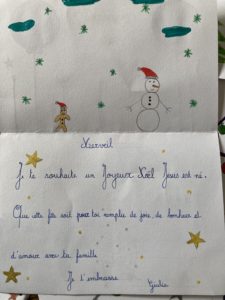 Je te souhaite un Joyeux Noël Jésus est né.
Que cette fête soit pour toi remplie de joie, de bonheur et
d'amour avec ta famille
Je t'embrasse
Giulia